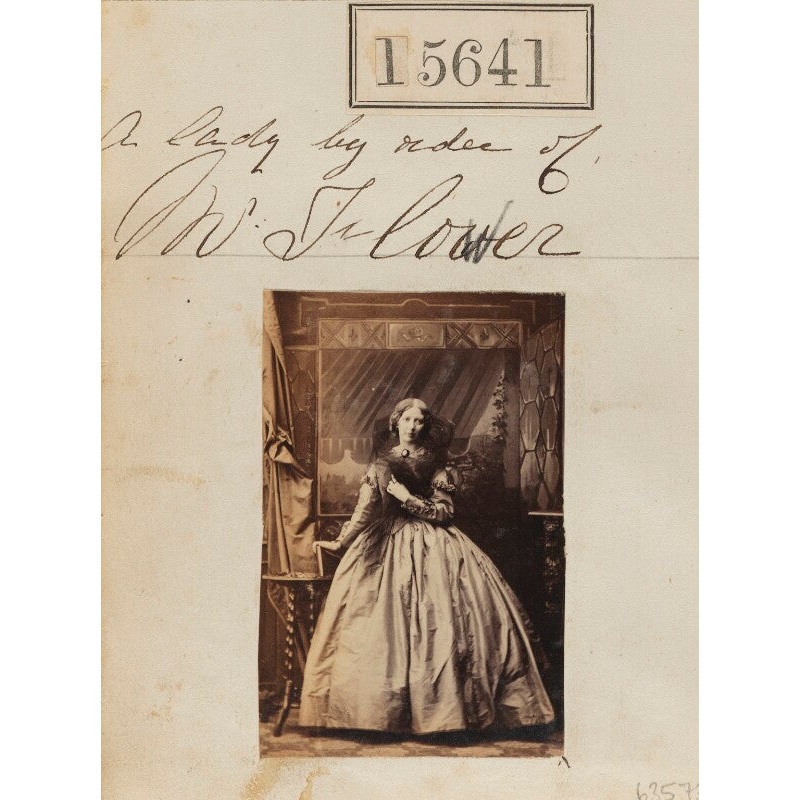 15641
A lady by order of
Mr. Flower
6357